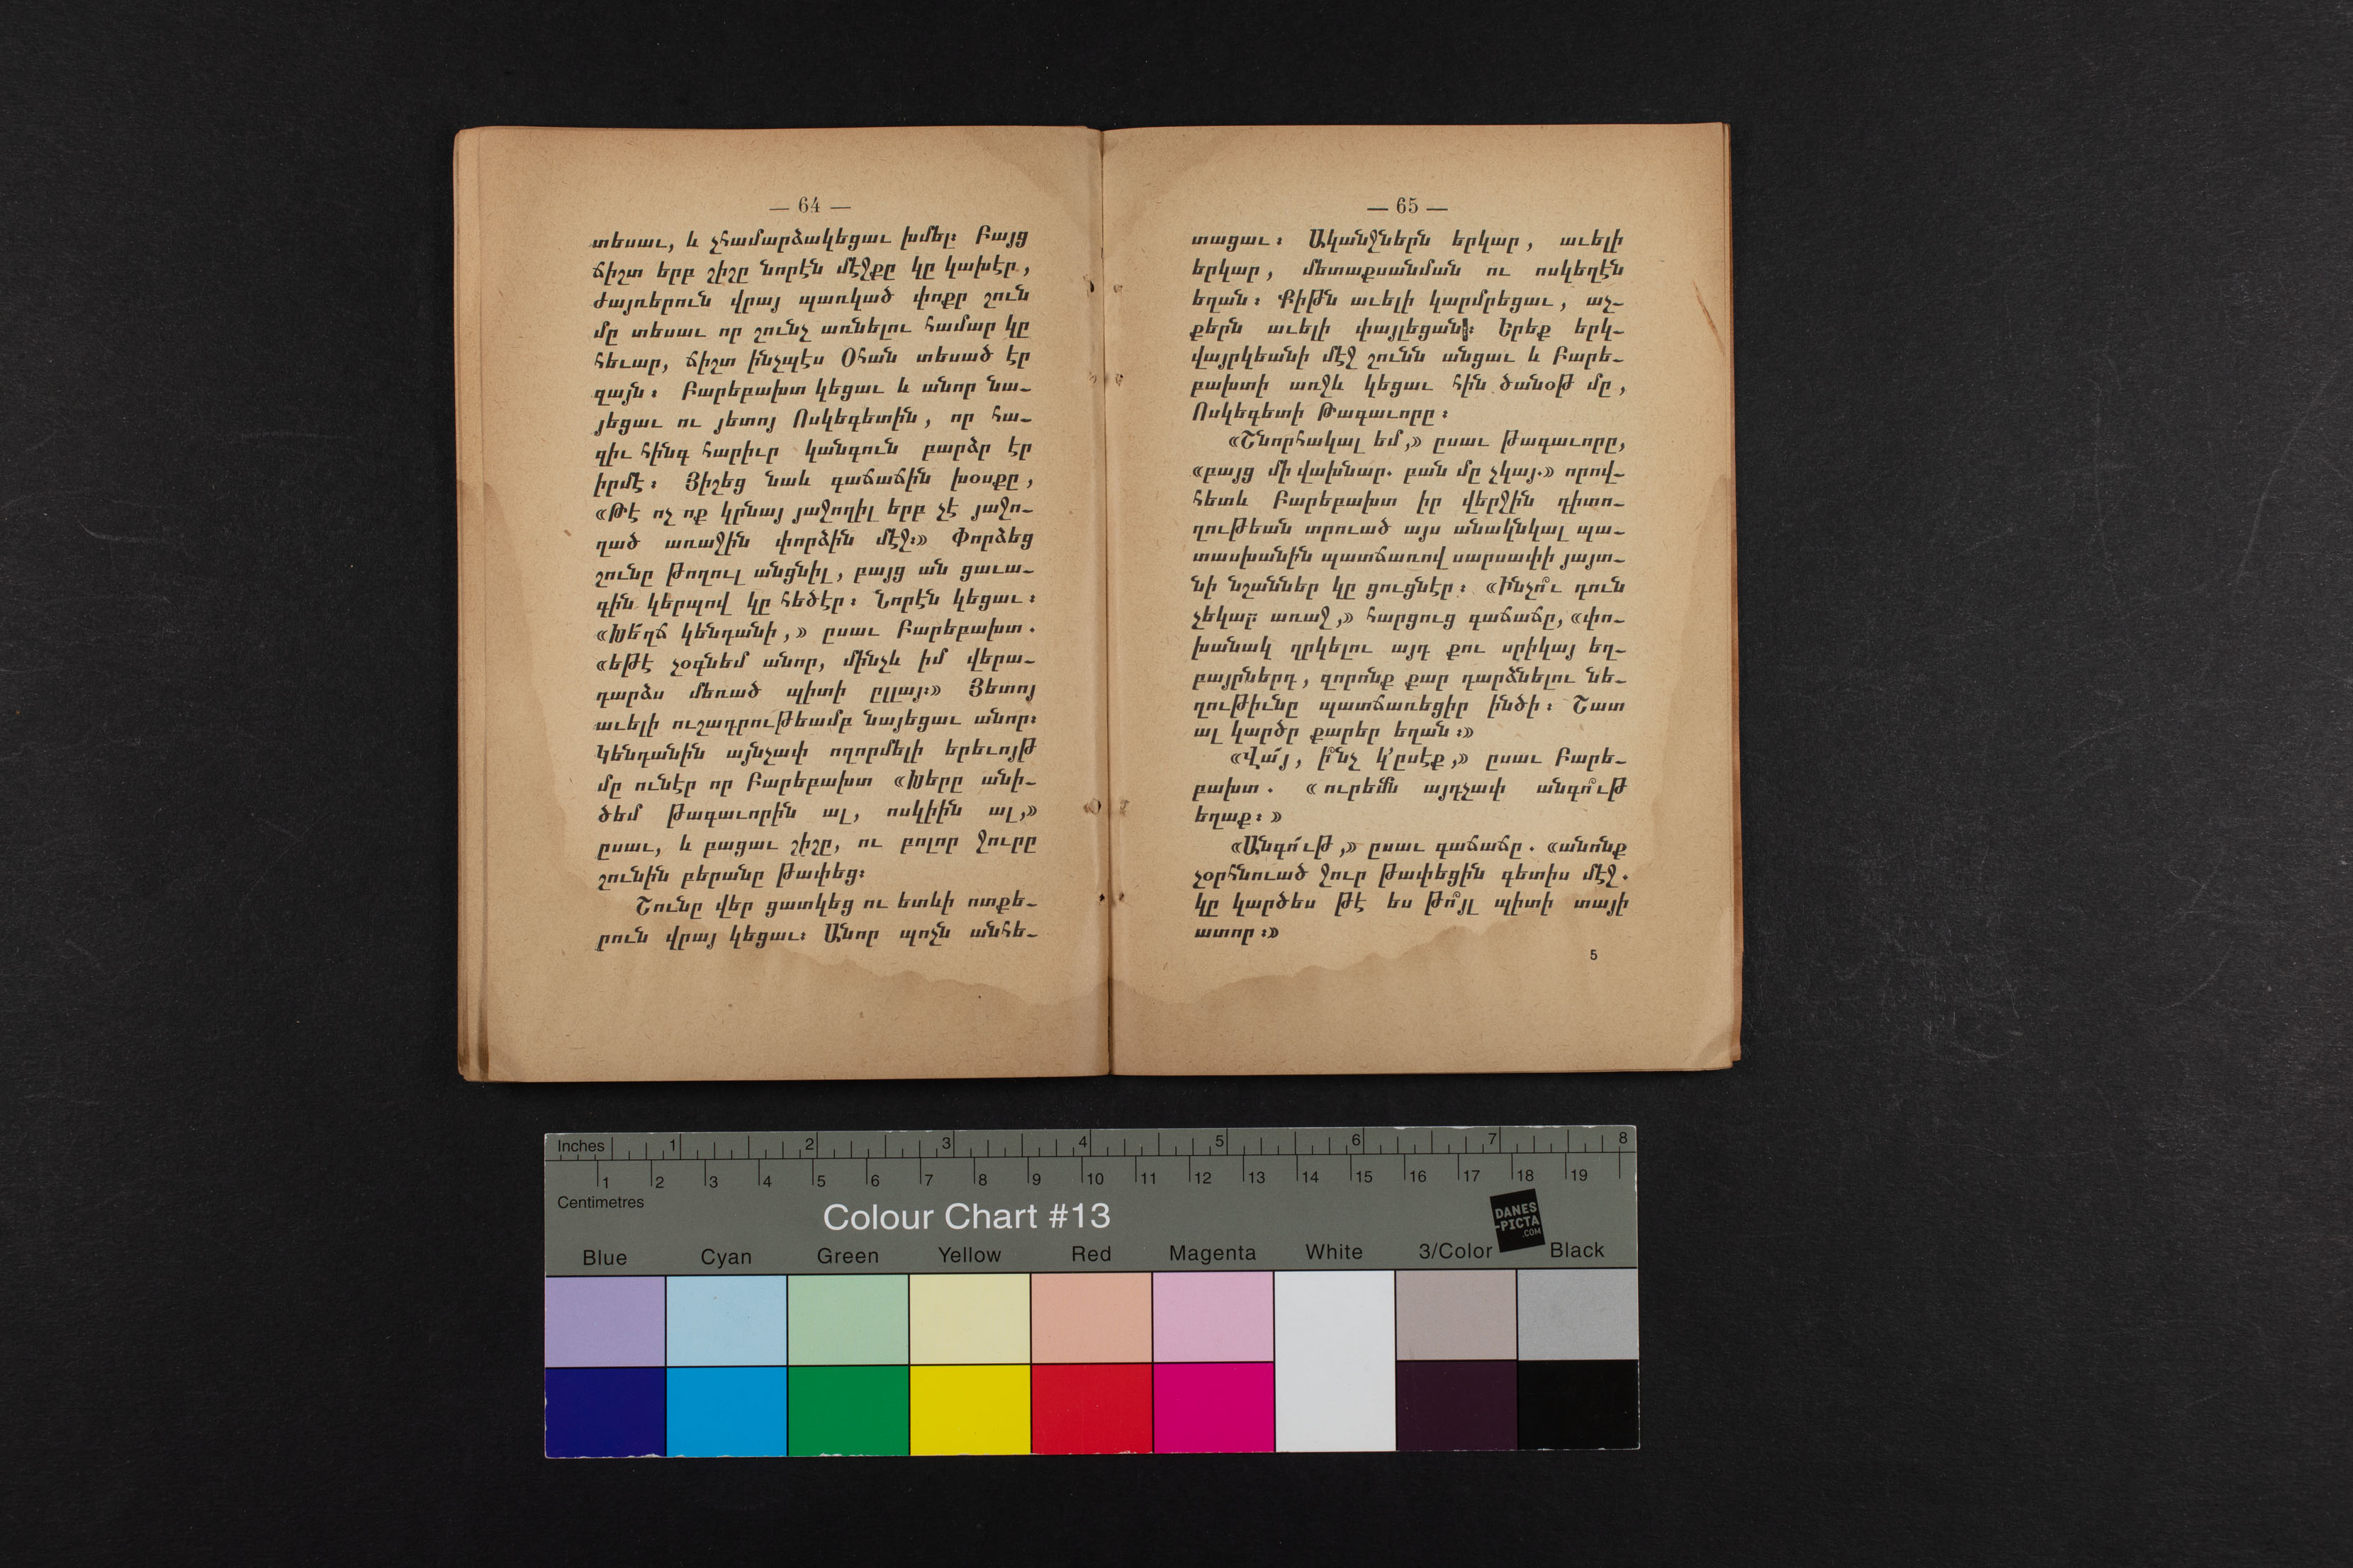 — 64 —
տեսաւ, և չհամարձակեցաւ խմել։ Բայց
ճիշտ երբ շիշը նորէն մէջքը կը կախէր,
ժայռերուն վրայ պառկած փոքր շուն
մը տեսաւ որ շունչ առնելու համար կը
հեւար, ճիշտ ինչպէս Օհան տեսած էր
զայն։ Բարեբախտ կեցաւ և անոր նա-
յեցաւ ու յետոյ Ոսկեգետին, որ հա-
զիւ հինգ հարիւր կանգուն բարձր էր
իրմէ։ Յիշեց նաև գաճաճին խօսքը,
«Թէ ոչ ոք կրնայ յաջողիլ երբ չէ յաջո-
ղած առաջին փորձին մէջ։» Փորձեց
շունը թողուլ անցնիլ, բայց ան ցաւա-
գին կերպով կը հեծէր։ Նորէն կեցաւ։
«Խե՜ղճ կենդանի,» ըսաւ Բարեբախտ.
«եթէ չօգնեմ անոր, մինչև իմ վերա-
դարձս մեռած պիտի ըլլայ։» Յետոյ
աւելի ուշադրութեամբ նայեցաւ անոր։
Կենդանին այնչափ ողորմելի երեւոյթ
մը ունէր որ Բարեբախտ «Խերը անի-
ծեմ թագաւորին ալ, ոսկիին ալ,»
ըսաւ, և բացաւ շիշը, ու բոլոր ջուրը
շունին բերանը թափեց։
Շունը վեր ցատկեց ու ետևի ոտքե-
րուն վրայ կեցաւ։ Անոր պոչն անհե-
— 65 —
տացաւ։ Ականջներն երկար, աւելի
երկար, մետաքսանման ու ոսկեղէն
եղան։ Քիթն աւելի կարմրեցաւ, աչ-
քերն աւելի փայլեցան։ Երեք երկ-
վայրկեանի մէջ շունն անցաւ և Բարե-
բախտի առջև կեցաւ հին ծանօթ մը,
Ոսկեգետի Թագաւորը։
«Շնորհակալ եմ,» ըսաւ թագաւորը,
«բայց մի վախնար. բան մը չկայ.» որով-
հետև Բարեբախտ իր վերջին դիտո-
ղութեան տրուած այս անակնկալ պա-
տասխանին պատճառով սարսափի յայտ-
նի նշաններ կը ցուցնէր։ «Ինչո՞ւ դուն
չեկար առաջ,» հարցուց գաճաճը, «փո-
խանակ ղրկելու այդ քու սրիկայ եղ-
բայրներդ, զորոնք քար դարձնելու նե-
ղութիւնը պատճառեցիր ինծի։ Շատ
ալ կարծր քարեր եղան։»
«Վա՜յ, ի՞նչ կ՚ըսէք,» ըսաւ Բարե-
բախտ. «ուրեմն այդչափ անգո՞ւթ
եղաք։»
«Անգո՜ւթ,» ըսաւ գաճաճը. «անոնք
չօրհնուած ջուր թափեցին գետիս մէջ.
կը կարծես թէ ես թո՞յլ պիտի տայի
ատոր։»
5
Inches 1 2 3 4 5 6 7 8
1 2 3 4 5 6 7 8 9 10 11 12 13 14 15 16 17 18 19
Centimetres
Colour Chart #13
DANES
-PICTA
.COM
Blue Cyan Green Yellow Red Magenta White 3/Color Black